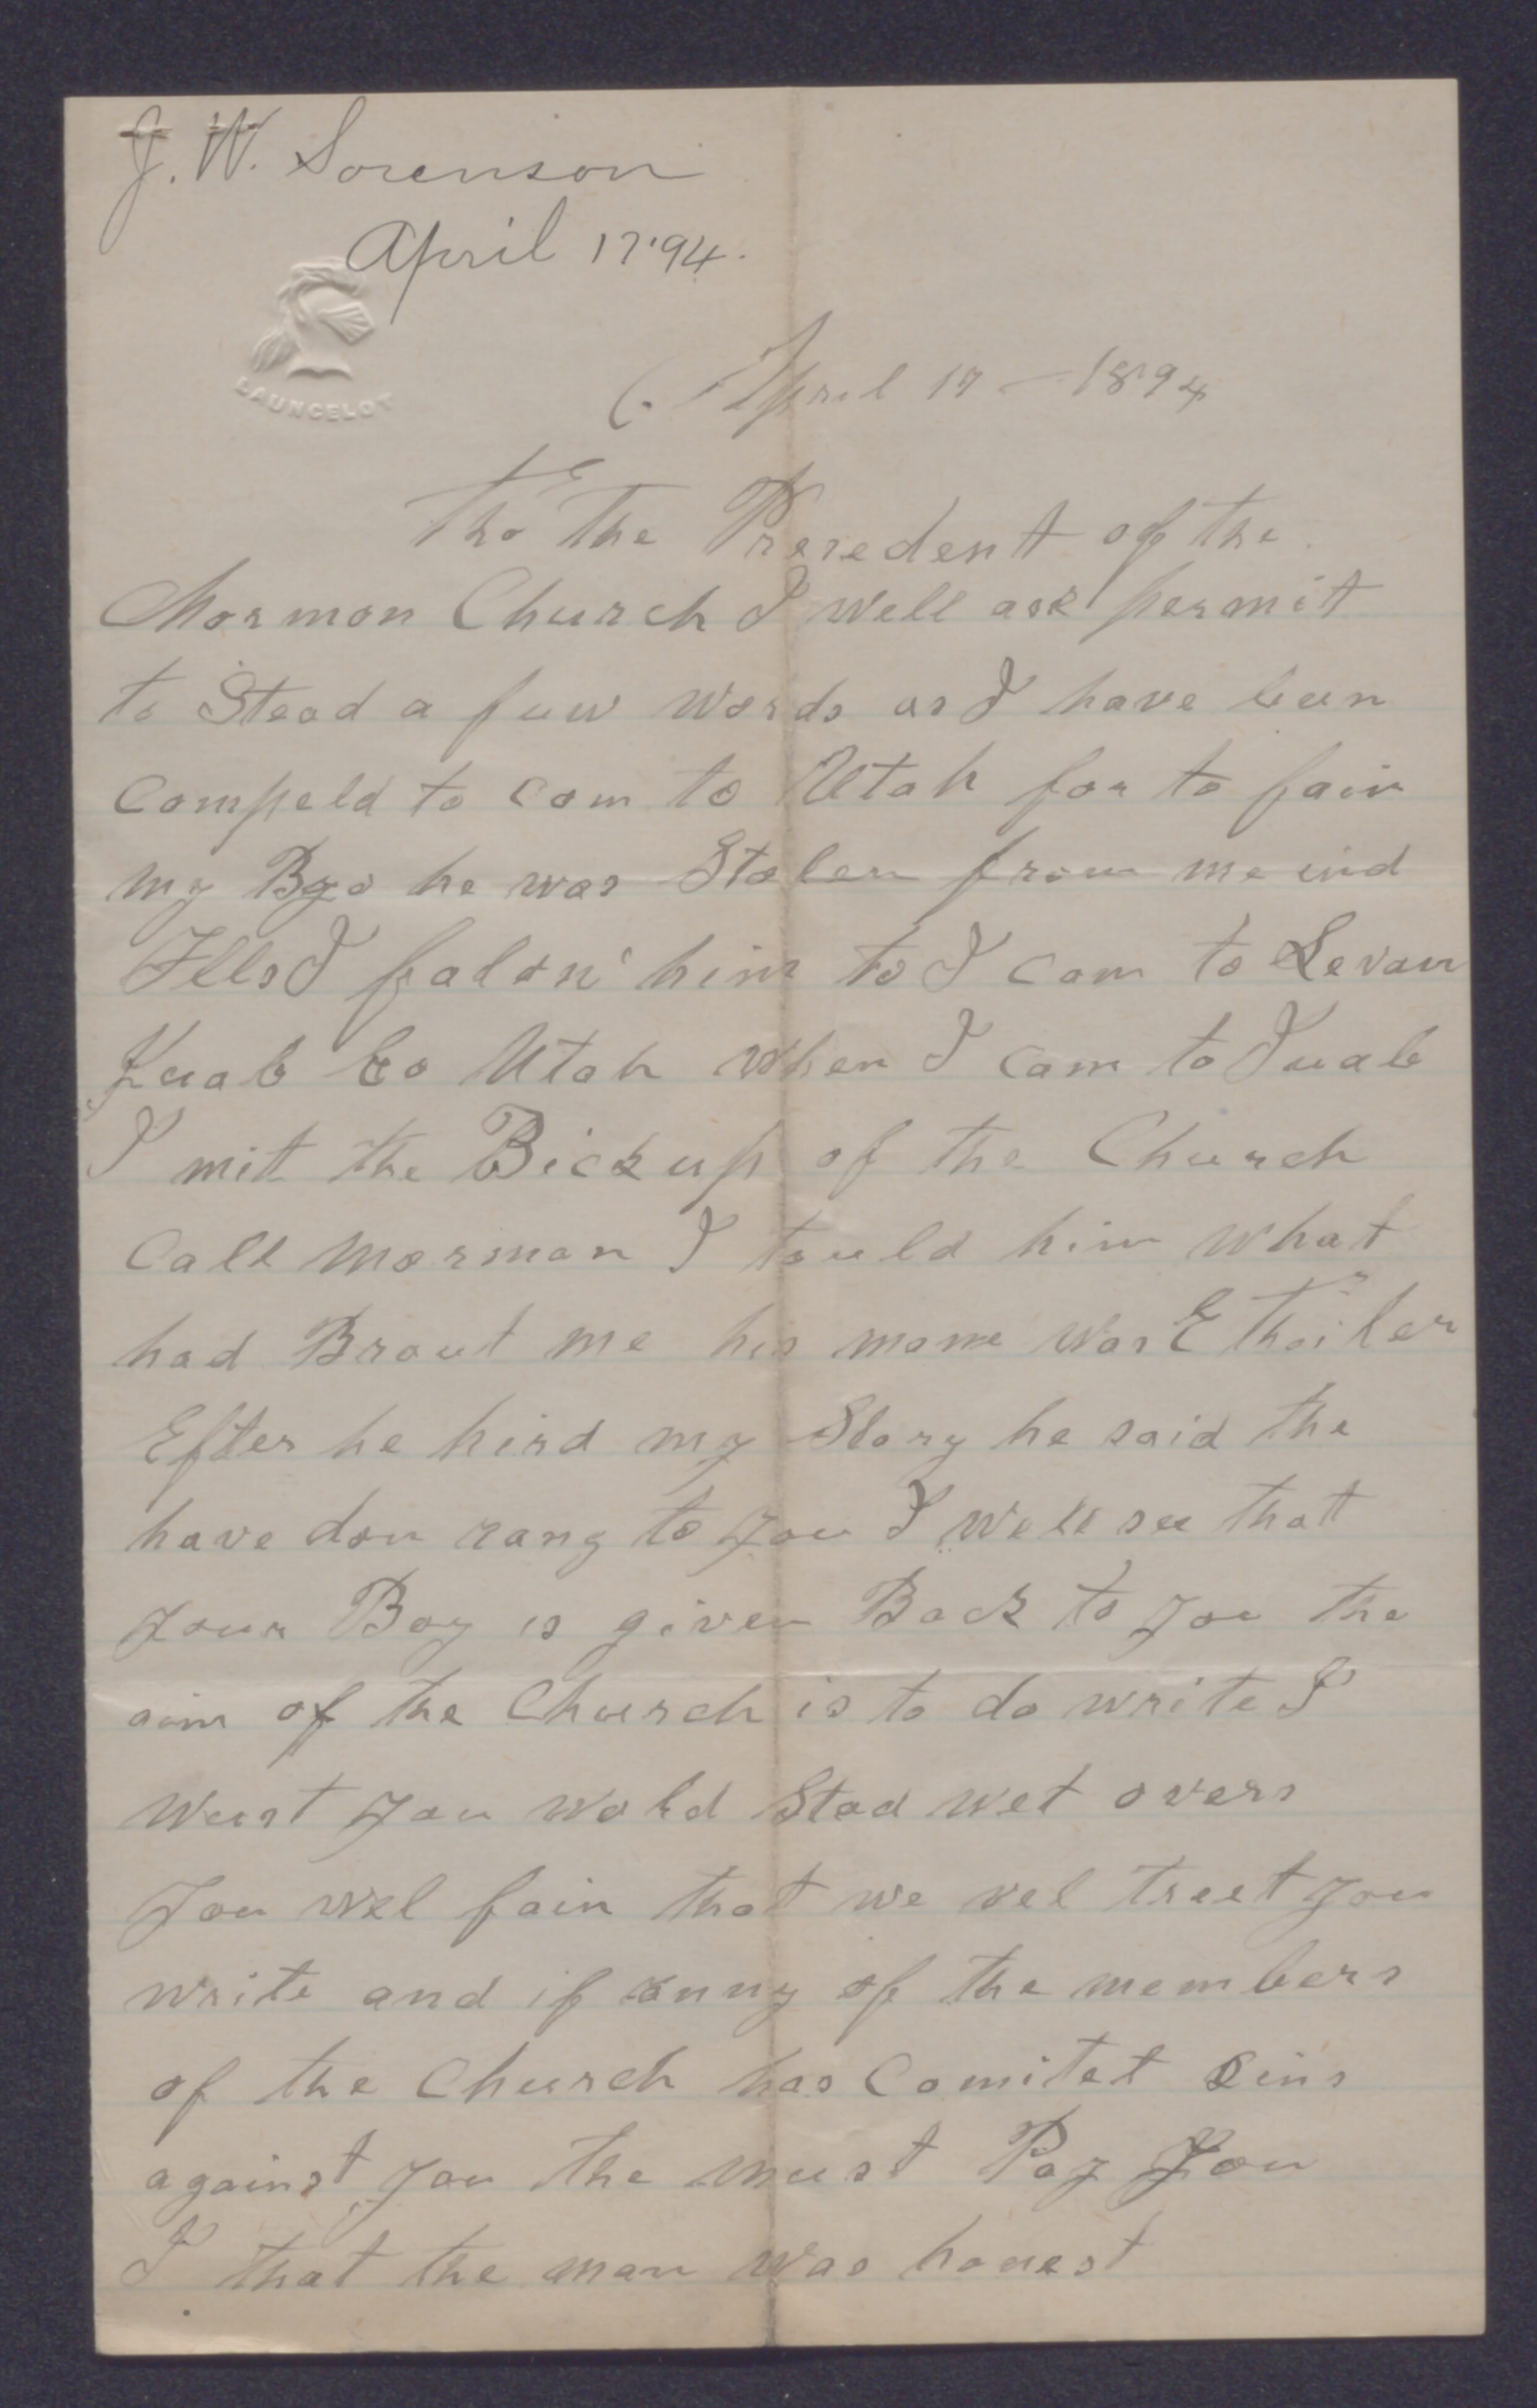 J. W. Sorenson
April 17 '94.
LAUNCELOT
April 17 — 1894
Tho The Presedent of the
Mormon Church I well ask permit
to Stead a fuw words as I have been
Compeld to com to Utah for to fain
my Byo he was Stolen from me ind
Ills I falon him to I cam to Levan
Juab Co Utah when I cam to Juab
I mitt the Bickup of the Church
Call Mormon I tould him what
had Brout me his mame was E Thailer
Efter he hird my Story he said the
have don rang to you I well see that
your Boy is given Back to you the
aim of the Church is to do write I
Wust you wold Stad wet overs
You wel fain that we wel treet you
write and if anny of the members
of the Church has Comitet Sins
against you the must Pay You
I that the man was honest